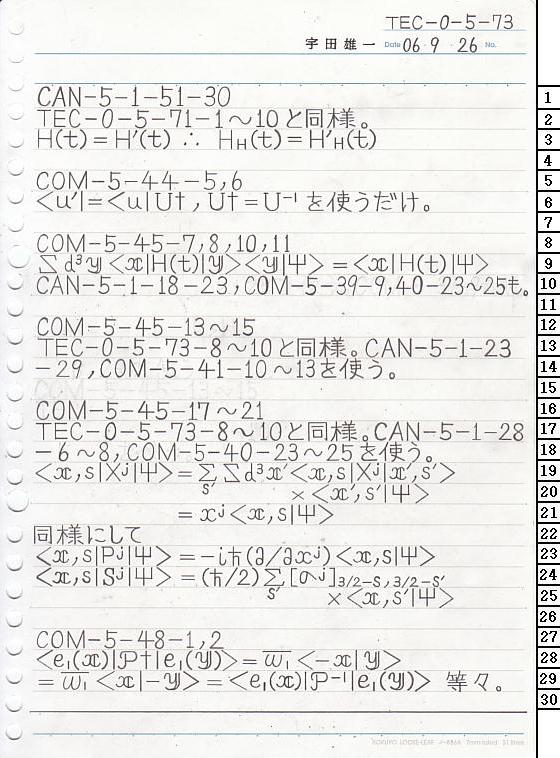 TEC-0-5-73
宇田雄一 Date 06・9・26 No.
CAN-5-1-51-30
TEC-0-5-71-1〜10と同様。
H(t)=H′(t) ∴ H_H(t)=H′_H(t)
COM-5-44-5,6
<u′|=<u|U†,U†=U⁻¹を使うだけ。
COM-5-45-7,8,10,11
∑d³y<x|H(t)|y><y|Ψ>=<x|H(t)|Ψ>
CAN-5-1-18-23,COM-5-39-9,40-23〜25も。
COM-5-45-13〜15
TEC-0-5-73-8〜10と同様。CAN-5-1-23
-29,COM-5-41-10〜13を使う。
COM-5-45-13〜15
COM-5-45-17〜21
TEC-0-5-73-8〜10と同様。CAN-5-1-28
-6〜8,COM-5-40-23〜25を使う。
<x,s|Xʲ|Ψ>=∑_s′ ∑d³x′<x,s|Xʲ|x′,s′>
×<x′,s′|Ψ>
=xʲ<x,s|Ψ>
同様にして
<x,s|Pʲ|Ψ>=-iħ(∂/∂xʲ)<x,s|Ψ>
<x,s|Sʲ|Ψ>=(ħ/2)∑_s′[σʲ]_3/2-s,3/2-s′
×<x,s′|Ψ>
COM-5-48-1,2
<e₁(x)|P†|e₁(y)>=w̅₁<-x|y>
=w̅₁<x|-y>=<e₁(x)|P⁻¹|e₁(y)> 等々。
1
2
3
4
5
6
7
8
9
10
11
12
13
14
15
16
17
18
19
20
21
22
23
24
25
26
27
28
29
30
KOKUYO LOOSE-LEAF ノ-836A 7mm ruled 31 lines